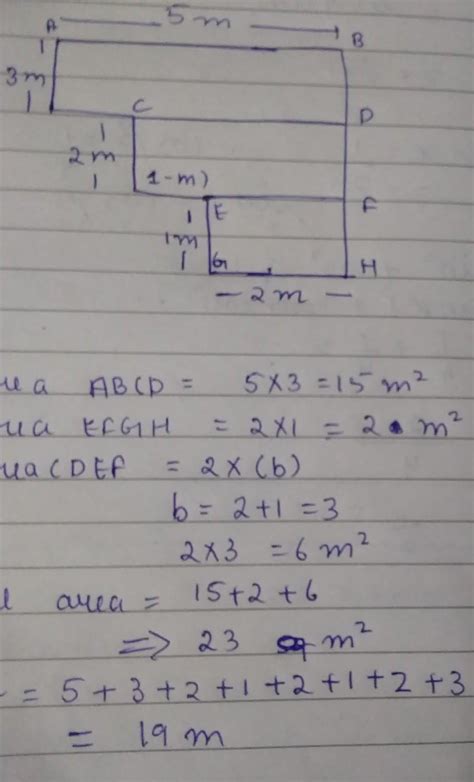 A 5 m B
3m
C D
2 m
1-m)
E F
1m
G H
- 2 m -
ABCD = 5×3 = 15 m²
EFGH = 2×1 = 2 m²
CDEF = 2×(b)
b = 2+1 = 3
2×3 = 6 m²
area = 15+2+6
⇒ 23 m²
= 5+3+2+1+2+1+2+3
= 19 m